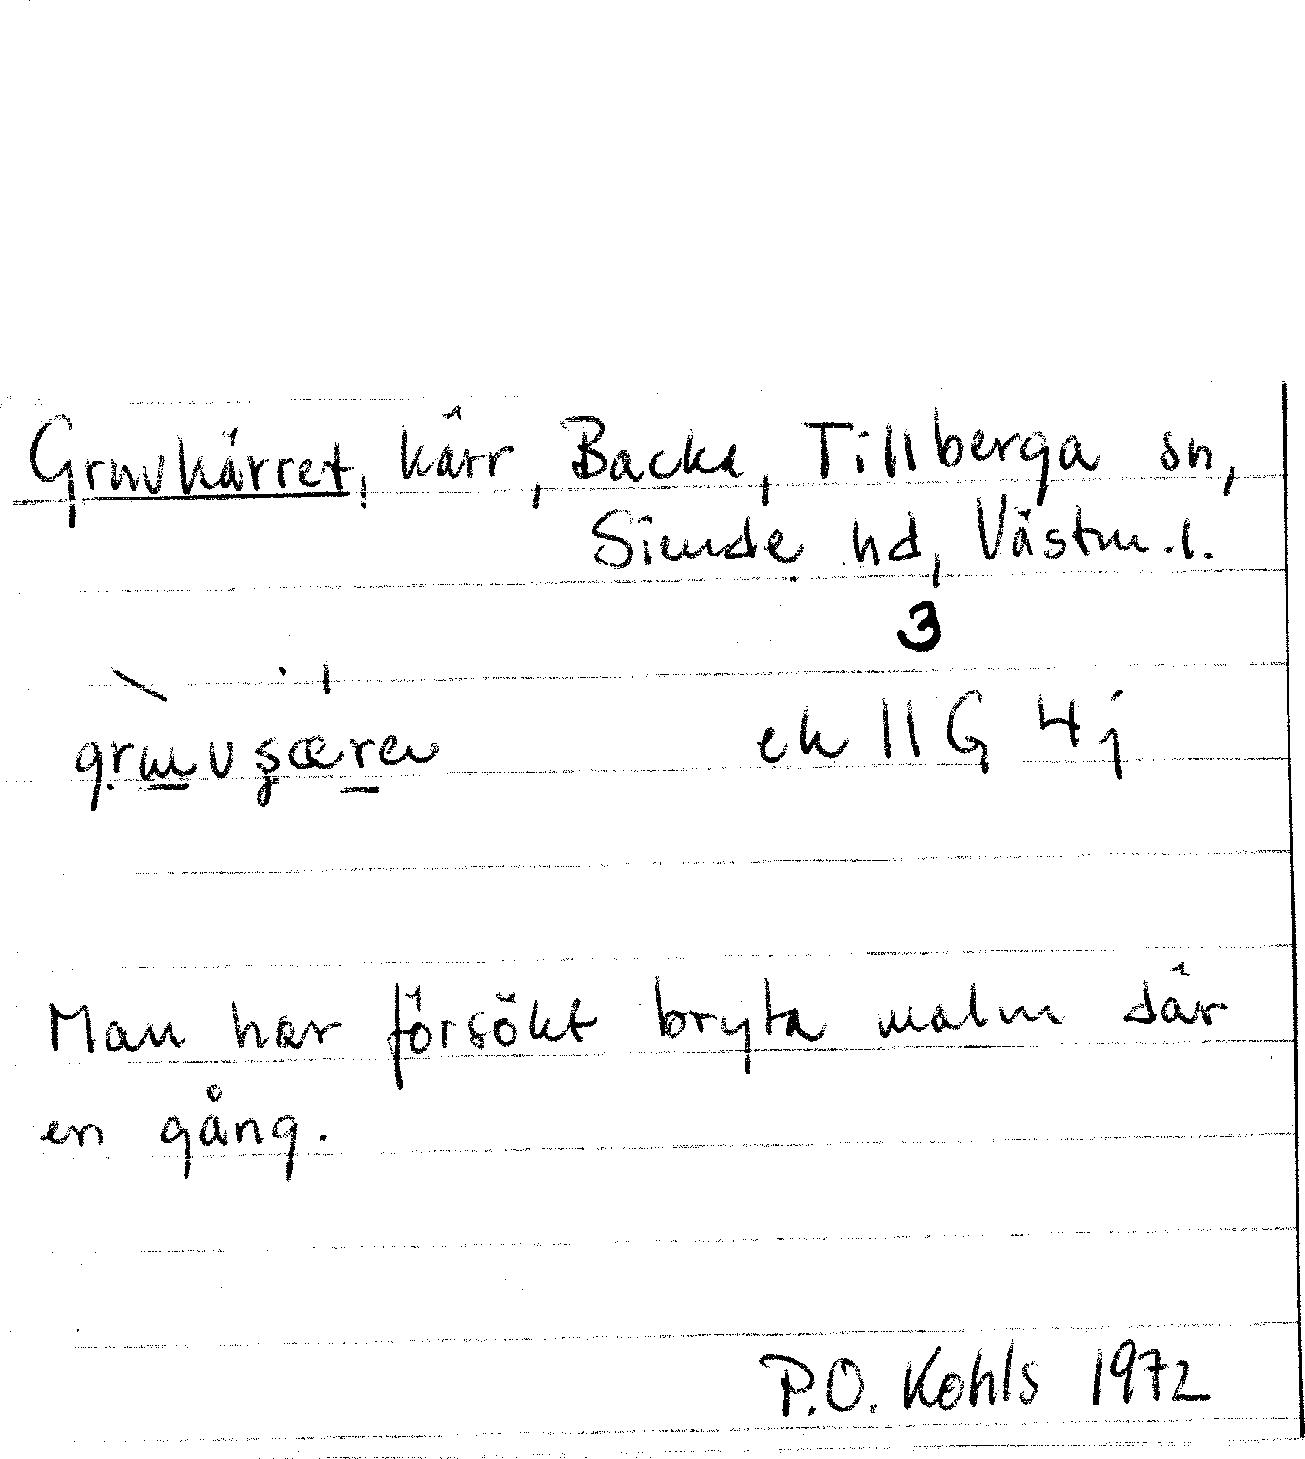 Gruvkärret, kärr, Backa, Tillberga sn,
Siende hd, Västm.l.
3
ek 11G 4j
Man har försökt bryta malm där
en gång.
P.O. Kohls 1972